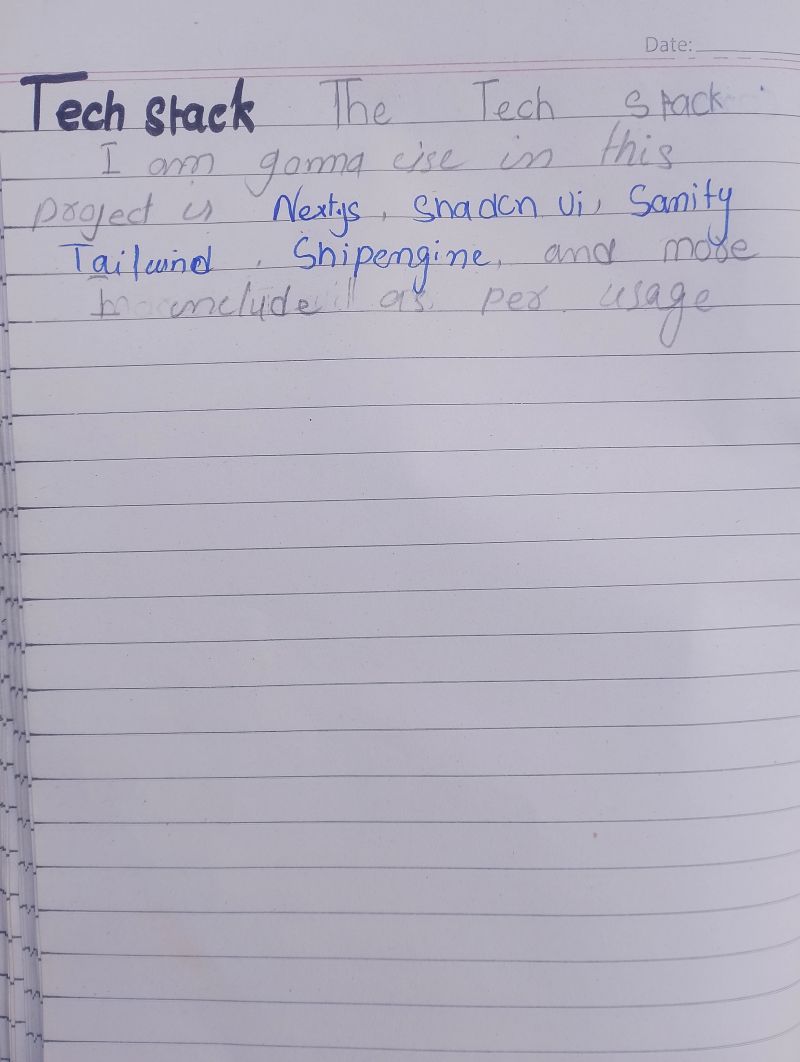 Date:
Tech stack The Tech stack
I am gonna use in this
project is Nextjs, Shadcn Ui, Sanity
Tailwind, Shipengine, and more
include as per usage